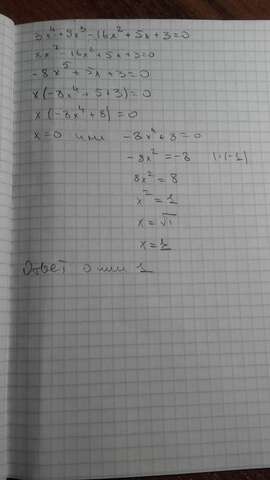 3x⁴+5x³-16x²+5x+3=0
8x⁷-16x²+5x+3=0
-8x⁵+5x+3=0
x(-8x⁴+5+3)=0
x(-8x⁴+8)=0
x=0 или -8x⁴+8=0
-8x²=-8 |·(-1)
8x²=8
x²=1
x=√1
x=1
Ответ 0 или 1